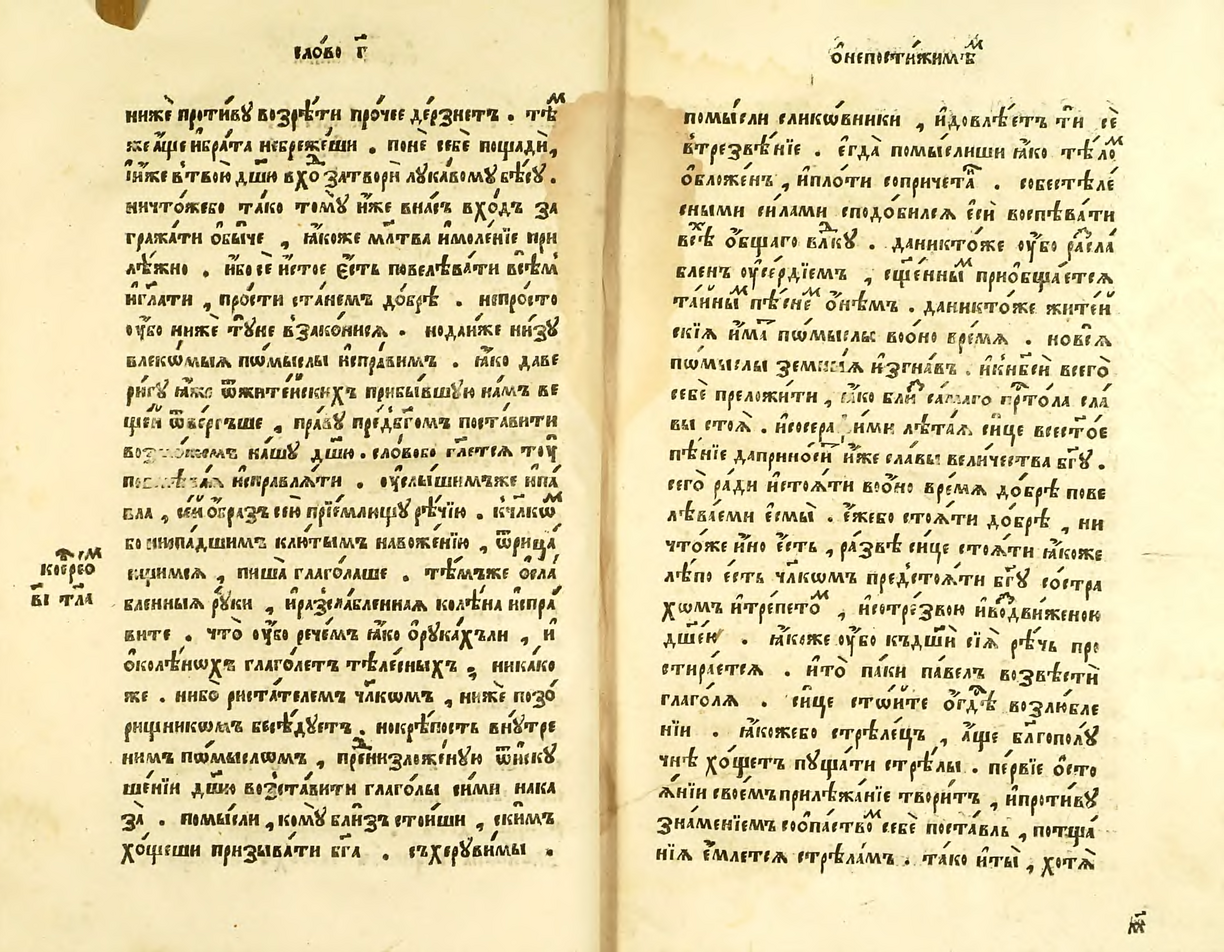 сло́во г҃
нижѐ проти́вꙋ возрѣ́ти про́чее де́рзнетъ . тѣⷨ
же а҆́ще и҆бра́та небреже́ши . понѐ себѐ пощадѝ,
и҆́ниже в̾твою̀ дш҃ю вхоⷣ затворѝ лꙋка́вомꙋ бѣ́сꙋ .
ничто́жебо та́ко томꙋ̀ и҆́же вна́съ вхо́дъ за
гражда́ти о҆бы́че , ꙗ҆́коже мл҃тва и҆моле́нїе при
лѣ́жно . и҆́бо сѐ и҆́стое є҆́сть повелѣва́ти всѣ́мъ
и҆гл҃ати , про́сти ста́немъ до́брѣ . непро́сто
оу҆́бо нижѐ тꙋ́не в̾зако́нисѧ . нода́иже ни́зꙋ
влекѡ́мыѧ по́мыслы и҆спра́вимъ . ꙗ҆́ко даве
ри́гꙋ ꙗ҆́же ѿжите́искихъ прибы́вшꙋю на́мъ ве
ще́й ѿве́ргъше , пра́вꙋ предбг҃омъ поста́вити
нашꙋ дш҃ю . сло́вобо гл҃етсѧ тоу҆̀
и҆справлѧ́ти . оу҆слы́шимъже и҆па́
вла , се́й о҆́бразъ сею̀ прїе́млющꙋ рѣ́чїю . кчл҃кѡⷨ
бо низпа́дшимъ клю́тымъ навожде́нїю , ѿрица́
ющимсѧ , пиша̀ глаго́лаше . тѣ́мъже о҆сла́
бленныѧ рꙋ́ки , и҆разсла́бленнаѧ колѣ́на и҆спра́
вите . что̀ оу҆́бо рече́мъ ꙗ҆́ко о҆рꙋка́хъли , и҆
о҆колѣ́нѡхъ глаго́летъ тѣле́сныхъ ; ника́ко
же . нибо̀ риста́телемъ чл҃комъ , нижѐ позо́
рищникѡмъ бесѣ́дꙋетъ . нокрѣ́пость внꙋ́тре
нимъ по́мысломъ , преⷣнизложе́нꙋю ѿискꙋ
ше́нїи дш҃ю возста́вити глаго́лы си́ми нака
за̀ . помы́сли , комꙋ̀ бли́зъ стои́ши , ски́мъ
хо́щеши призыва́ти бг҃а . съхерꙋви́мы .
коеврео
в҃і гл҃а
о҆непости́жимѣⷨ
помы́сли сликѡ́вники , и҆довлѣ́етъ тѝ сѐ
в̾трезвѣ́нїе . є҆гда̀ помы́слиши ꙗ҆́ко тѣ́лоⷨ
о҆бло́женъ , и҆пло́ти сопричета́сѧ . собестѣле́
сными си́лами сподо́билсѧ є҆сѝ воспѣва́ти
всѣⷯ о҆́бщаго влⷣкꙋ . даникто́же оу҆́бо ра́сла
бленъ оу҆се́рдїемъ , сщ҃е́нныⷨ прио҆бща́етсѧ
та́йныⷨ пѣ́снеⷨ о҆́нѣмъ . данукто́же жите́й
скїѧ и҆́мать по́мыслы во́оно вре́мѧ . но всѧ̀
по́мыслы земны́ѧ и҆згна́въ . и҆кнб҃сѝ всего̀
себѐ преложи́ти , ꙗ҆́ко бли́ⷥ са́маго прⷭто́ла сла́
вы стоѧ̀ . и҆сосера ими лѣта́ѧ си́це всесто́е
пѣ́нїе даприно́си и҆́же сла́вы вели́чества бг҃ꙋ .
сего̀ ра́ди и҆стоѧ́ти во́оно вре́мѧ до́брѣ пове
лѣва́еми є҆смы̀ . є҆́жебо стоѧ́ти до́брѣ , ни
что́же и҆́но є҆́сть , ра́звѣ си́це стоѧ́ти ꙗ҆́коже
лѣ́по є҆́сть чл҃кѡмъ предстоѧ́ти бг҃ꙋ со́стра
хѡмъ и҆тре́петоⷨ , и҆сотре́звою и҆воⷥдви́женою
дш҃ею . ꙗ҆́коже оу҆́бо къдш҃и сїѧ̀ рѣ́чь про
стира́етсѧ . и҆то̀ па́ки па́велъ возвѣстѝ
глаго́лѧ . си́це сто́ите о҆гⷭдѣ возлю́бле
нїи . ꙗ҆́кожебо стрѣле́цъ , а҆́ще благополꙋ́
чнѣ хо́щетъ пꙋща́ти стрѣ́лы . пе́рвїе о҆сто
ѧ́нїи свое́мъ прилѣжа́нїе твори́тъ , и҆проти́вꙋ
зна́менїемъ соо́паствоⷨ себѐ поста́вль , потща́
нїѧ є҆́млетсѧ стрѣла́мъ . та́ко и҆ты̀ , хотѧ̀